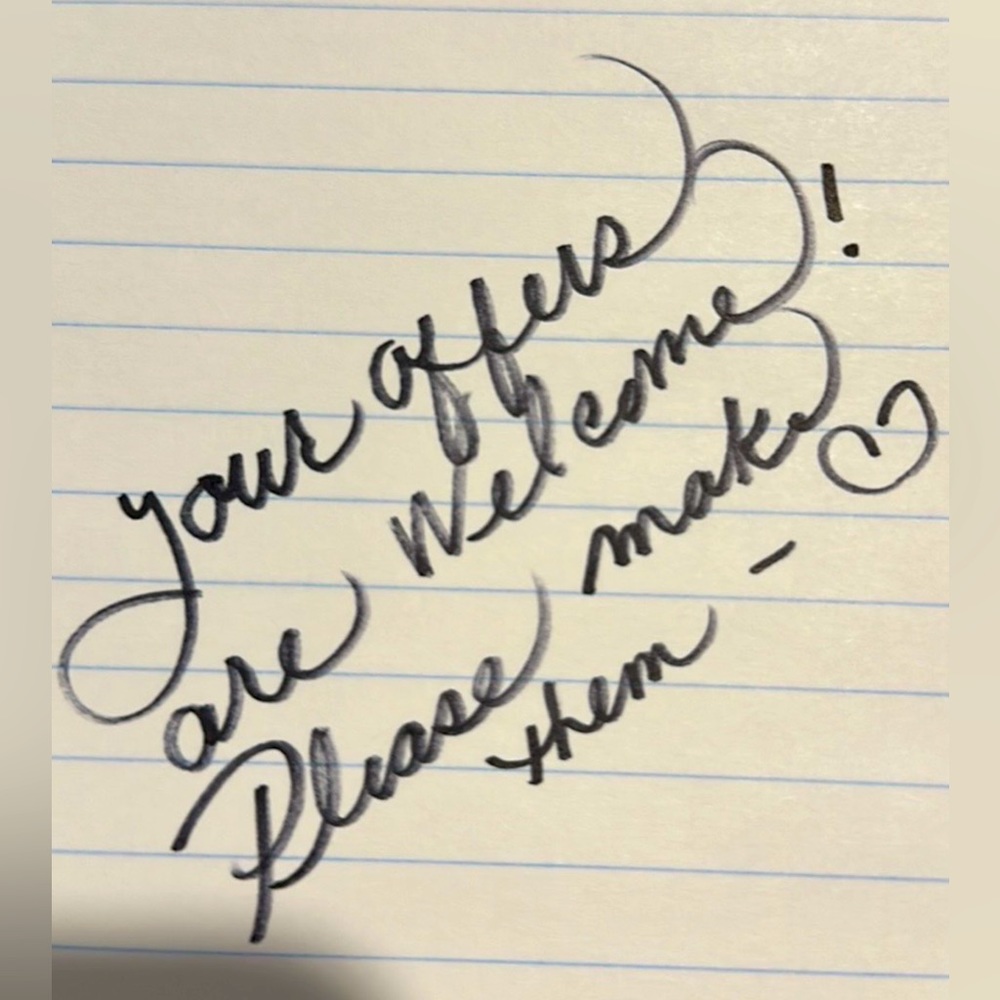 your offers
are Welcome!
Please make
them -